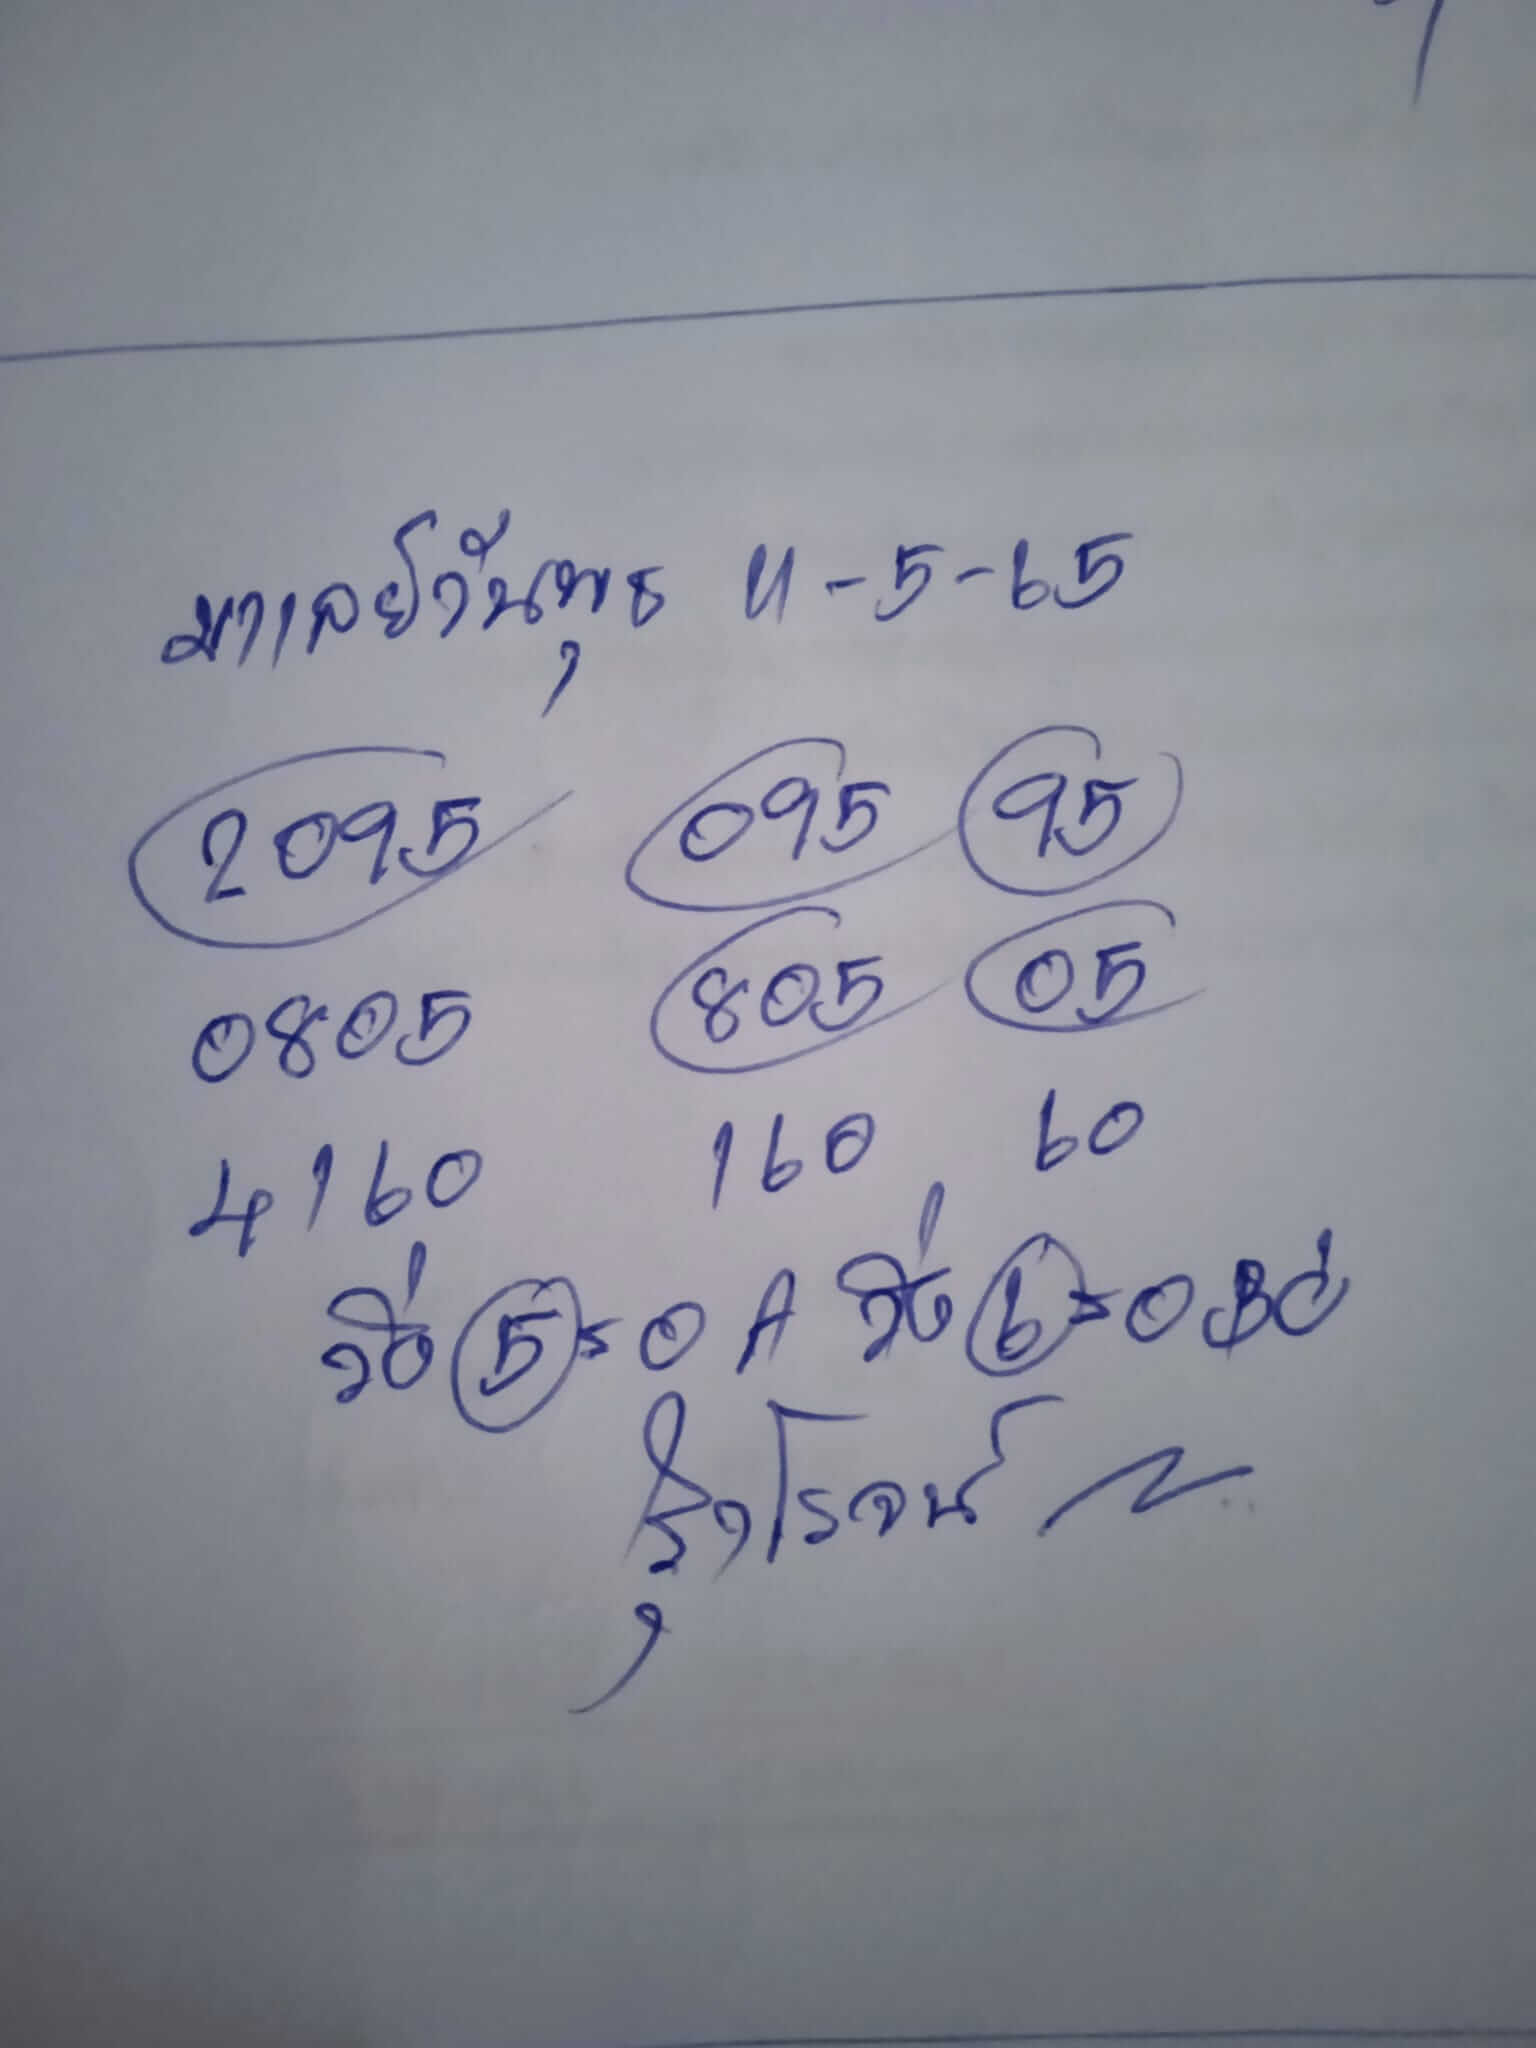 มาเลย์วันพุธ 11-5-65
2095 095 95
0805 805 05
4160 160 60
วิ่ง 5 = 0 A วิ่ง 6 = 0 BC
โรจน์